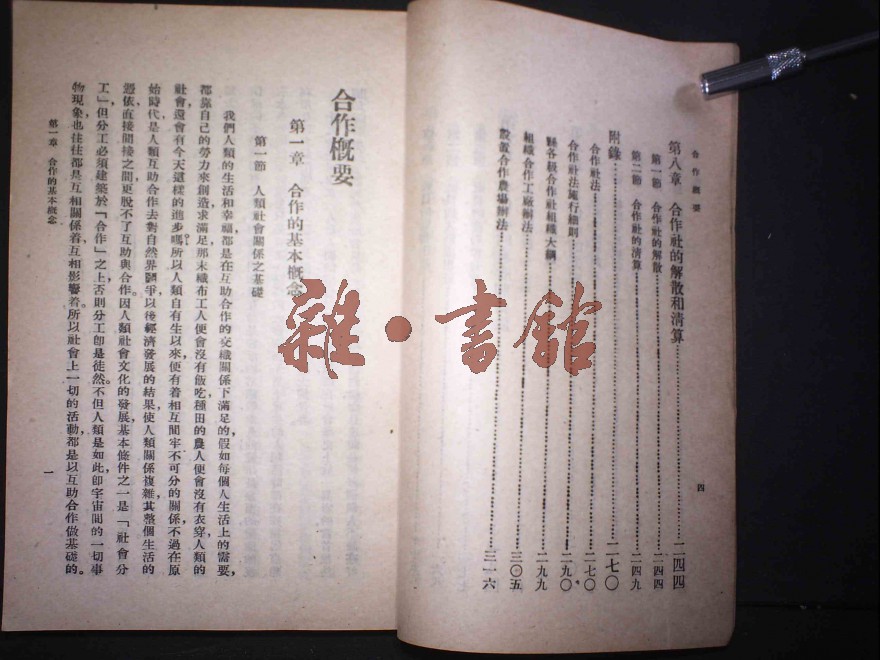 合作概要
第八章　合作社的解散和清算……二四四
第一節　合作社的解散……二四四
第二節　合作社的清算……二四九
附錄……二七〇
合作社法……二七〇
合作社法施行細則……二九〇
縣各級合作社組織大綱……二九九
組織合作工廠辦法……三〇五
設置合作農場辦法……三一六
四
合作概要
第一章　合作的基本概念
第一節　人類社會關係之基礎
我們人類的生活和幸福，都是在互助合作的交織關係下滿足的，假如每個人生活上的需要，
都靠自己的勞力來創造，求滿足，那末織布工人便會沒有飯吃，種田的農人便會沒有衣穿，人類的
社會還會有今天這樣的進步嗎？所以人類自有生以來，便有着相互間牢不可分的關係，不過在原
始時代是人類互助合作去對自然界鬭爭，以後經濟發展的結果，使人類關係複雜，其整個生活的
憑依，直接間接之間，更脫不了互助與合作。因人類社會文化的發展，基本條件之一是「社會分
工」，但分工必須建築於「合作」之上，否則分工卽是徒然。不但人類是如此，卽宇宙間的一切事
物現象，也往往都是互相關係着，互相影響着。所以社會上一切的活動，都是以互助合作做基礎的。
第一章　合作的基本概念
一
雜·書館